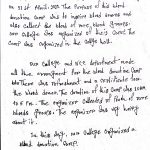 on 21st April 2022. The Purpose of this blood
donation camp was to inspire blood donors and
also collect the blood of more blood groups.
our college was organized of this event. The
Camp was organized in the college hall.
Our college and NCC department made
all the arrangement for the blood donation camp
the blood donors. The duration of this camp was 10am
to 5 pm. The organizer collected of
blood groups. The organizer was very
about it.
In this way, our college organized a
blood donation camp.